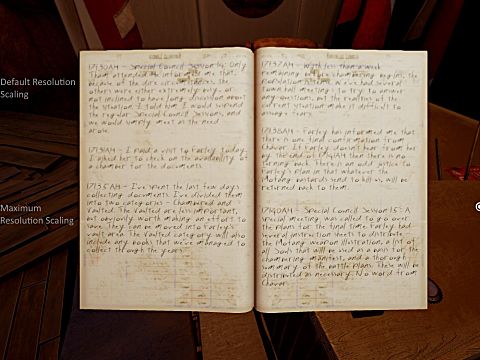 Default Resolution
Scaling
Maximum
Resolution Scaling
17,130AM - Special Council Session 14: Only
Tham attended. He informed me that,
because of the dire circumstances, the
others were either extremely busy or
not inclined to have long discussion about
the situation. I told him I would suspend
the regular Special Council Sessions, and
we would simply meet as the need
arose.
17,131AM - I paid a visit to Farley today.
I asked her to check on the availability of
a chamber for the documents.
17,135AM - I've spent the last few days
collecting documents. I've divided them
into two categories - Chambered and
Vaulted. The Vaulted are less important,
but obviously worth making an effort to
save. They can be moved into Farley's
vault area. The Vaulted category will also
include any books that we've managed to
collect through the years.
17,137AM - With less than a week
remaining before chambering begins, the
population is tense. We've had several
town hall meetings to try to answer
any questions, but the realities of the
situation make it difficult to
assuage fears.
17,138AM - Farley has informed me that
there is one final confirmation from
Chavar. If Farley doesn't hear from her
by the end of 17,141AM then there is no
turning back. There is an odd justice to
Farley's plan in that whatever the
Mofang bastards send to kill us, will be
returned back to them.
17,140AM - Special Council Session 15: A
special meeting was called to go over
the plans for the final time. Farley had
several instruction sheets to distribute -
the Mofang weapon illustration, a list of
all souls that will be used as a basis for the
chambering manifest, and a thorough
summary of the battle plans. These will be
distributed as necessary. No word from
Chavar.